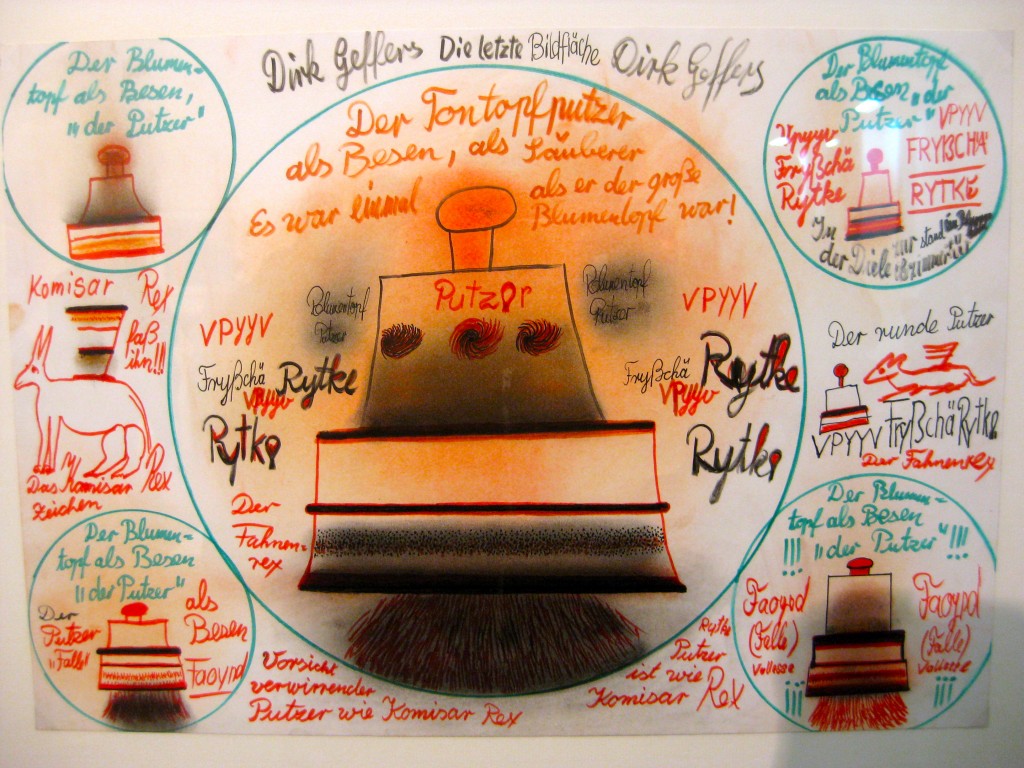 Dirk Geffers Die letzte Bildfläche Dirk Geffers
Der Blumen=
topf als Besen,
„der Putzer“
Der Tontopfputzer
als Besen, als Säuberer
Es war einmal als er der große
Blumentopf war!
Der Blumentopf
als Besen „der
Putzer“
VPYYV
Vpyyv
Fryßchä
Rytke
FRYßCHÄ
RYTKE
In
der Diele zur
stand
Komisar Rex
faß
ihn!!!
Das Komisar Rex
Zeichen
Blumentopf
Putzer
Putzer
Blumentopf
Putzer
VPYYV
Fryßchä Rytke
Vpyyv
Rytke
VPYYV
Fryßchä Rytke
Vpyyv
Rytke
Der
Fahnen=
rex
Der runde Putzer
VPYYV Fryßchä Rytke
Der Fahnenrex
Der Blumen=
topf als Besen
„der Putzer“
Der
Putzer
als
Besen
Faoypd
Der Blumen=
topf als Besen
!!! „der Putzer“!!!
Faoypd
(Falle)
Faoypd
(Falle)
Vorsicht
verwirrender
Putzer wie Komisar Rex
Rytke
Putzer
ist wie
Komisar Rex